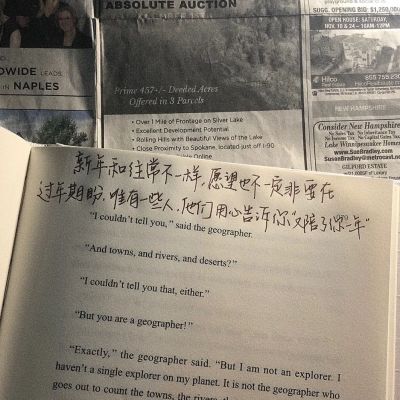 ABSOLUTE AUCTION
Prime 457+/- Deeded Acres
Offered in 3 Parcels
• Over 1 Mile of Frontage on Silver Lake
• Excellent Development Potential
• Rolling Hills with Beautiful Views of the Lake
• Close Proximity to Spokane, located just off I-90
Online
DWIDE LEADS
IN NAPLES
SUGG. OPENING BID: $1,250,000
OPEN HOUSE: SATURDAY,
NOV. 10 & 24 – 10AM-12PM
Hilco
Real Estate
855.755.23
NEW HAMPSHIRE
Consider New Hampshire
No Sales Tax, No Inheritance Tax
No Income Tax, No Capital Gains Tax
Lake Winnipesaukee Homes
www.SueBradley.com
SusanBradley@metrocast.n
GILFORD ESTATE
新年和往常不一样,愿望也不一定非要在
过年期盼,唯有一些人,他们用心告诉你“又陪了你一年”
“I couldn’t tell you,” said the geographer.
“And towns, and rivers, and deserts?”
“I couldn’t tell you that, either.”
“But you are a geographer!”
“Exactly,” the geographer said. “But I am not an explorer. I
haven’t a single explorer on my planet. It is not the geographer who
goes out to count the towns, the rivers, the